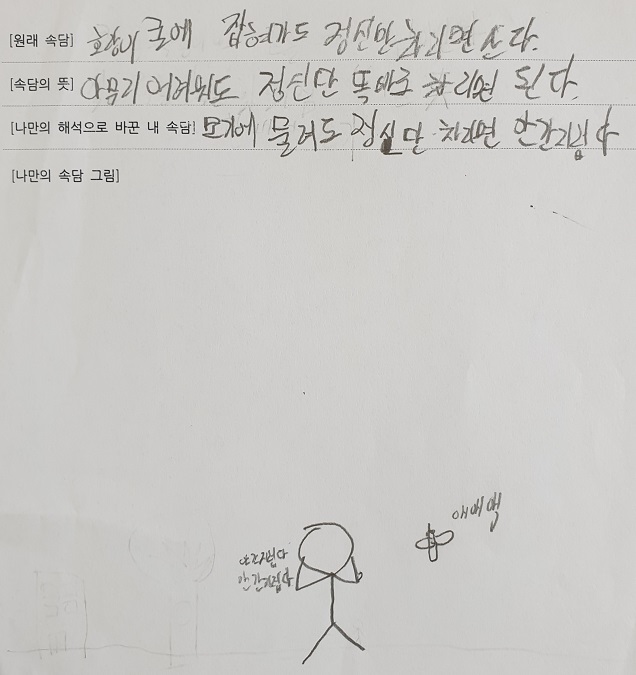 [원래 속담] 호랑이 굴에 잡혀가도 정신만 차리면 산다.
[속담의 뜻] 아무리 어려워도 정신만 똑바로 차리면 된다.
[나만의 해석으로 바꾼 내 속담] 모기에 물려도 정신만 차리면 안간지럽다
[나만의 속담 그림]
애애앵
안간지럽다
안간지럽다